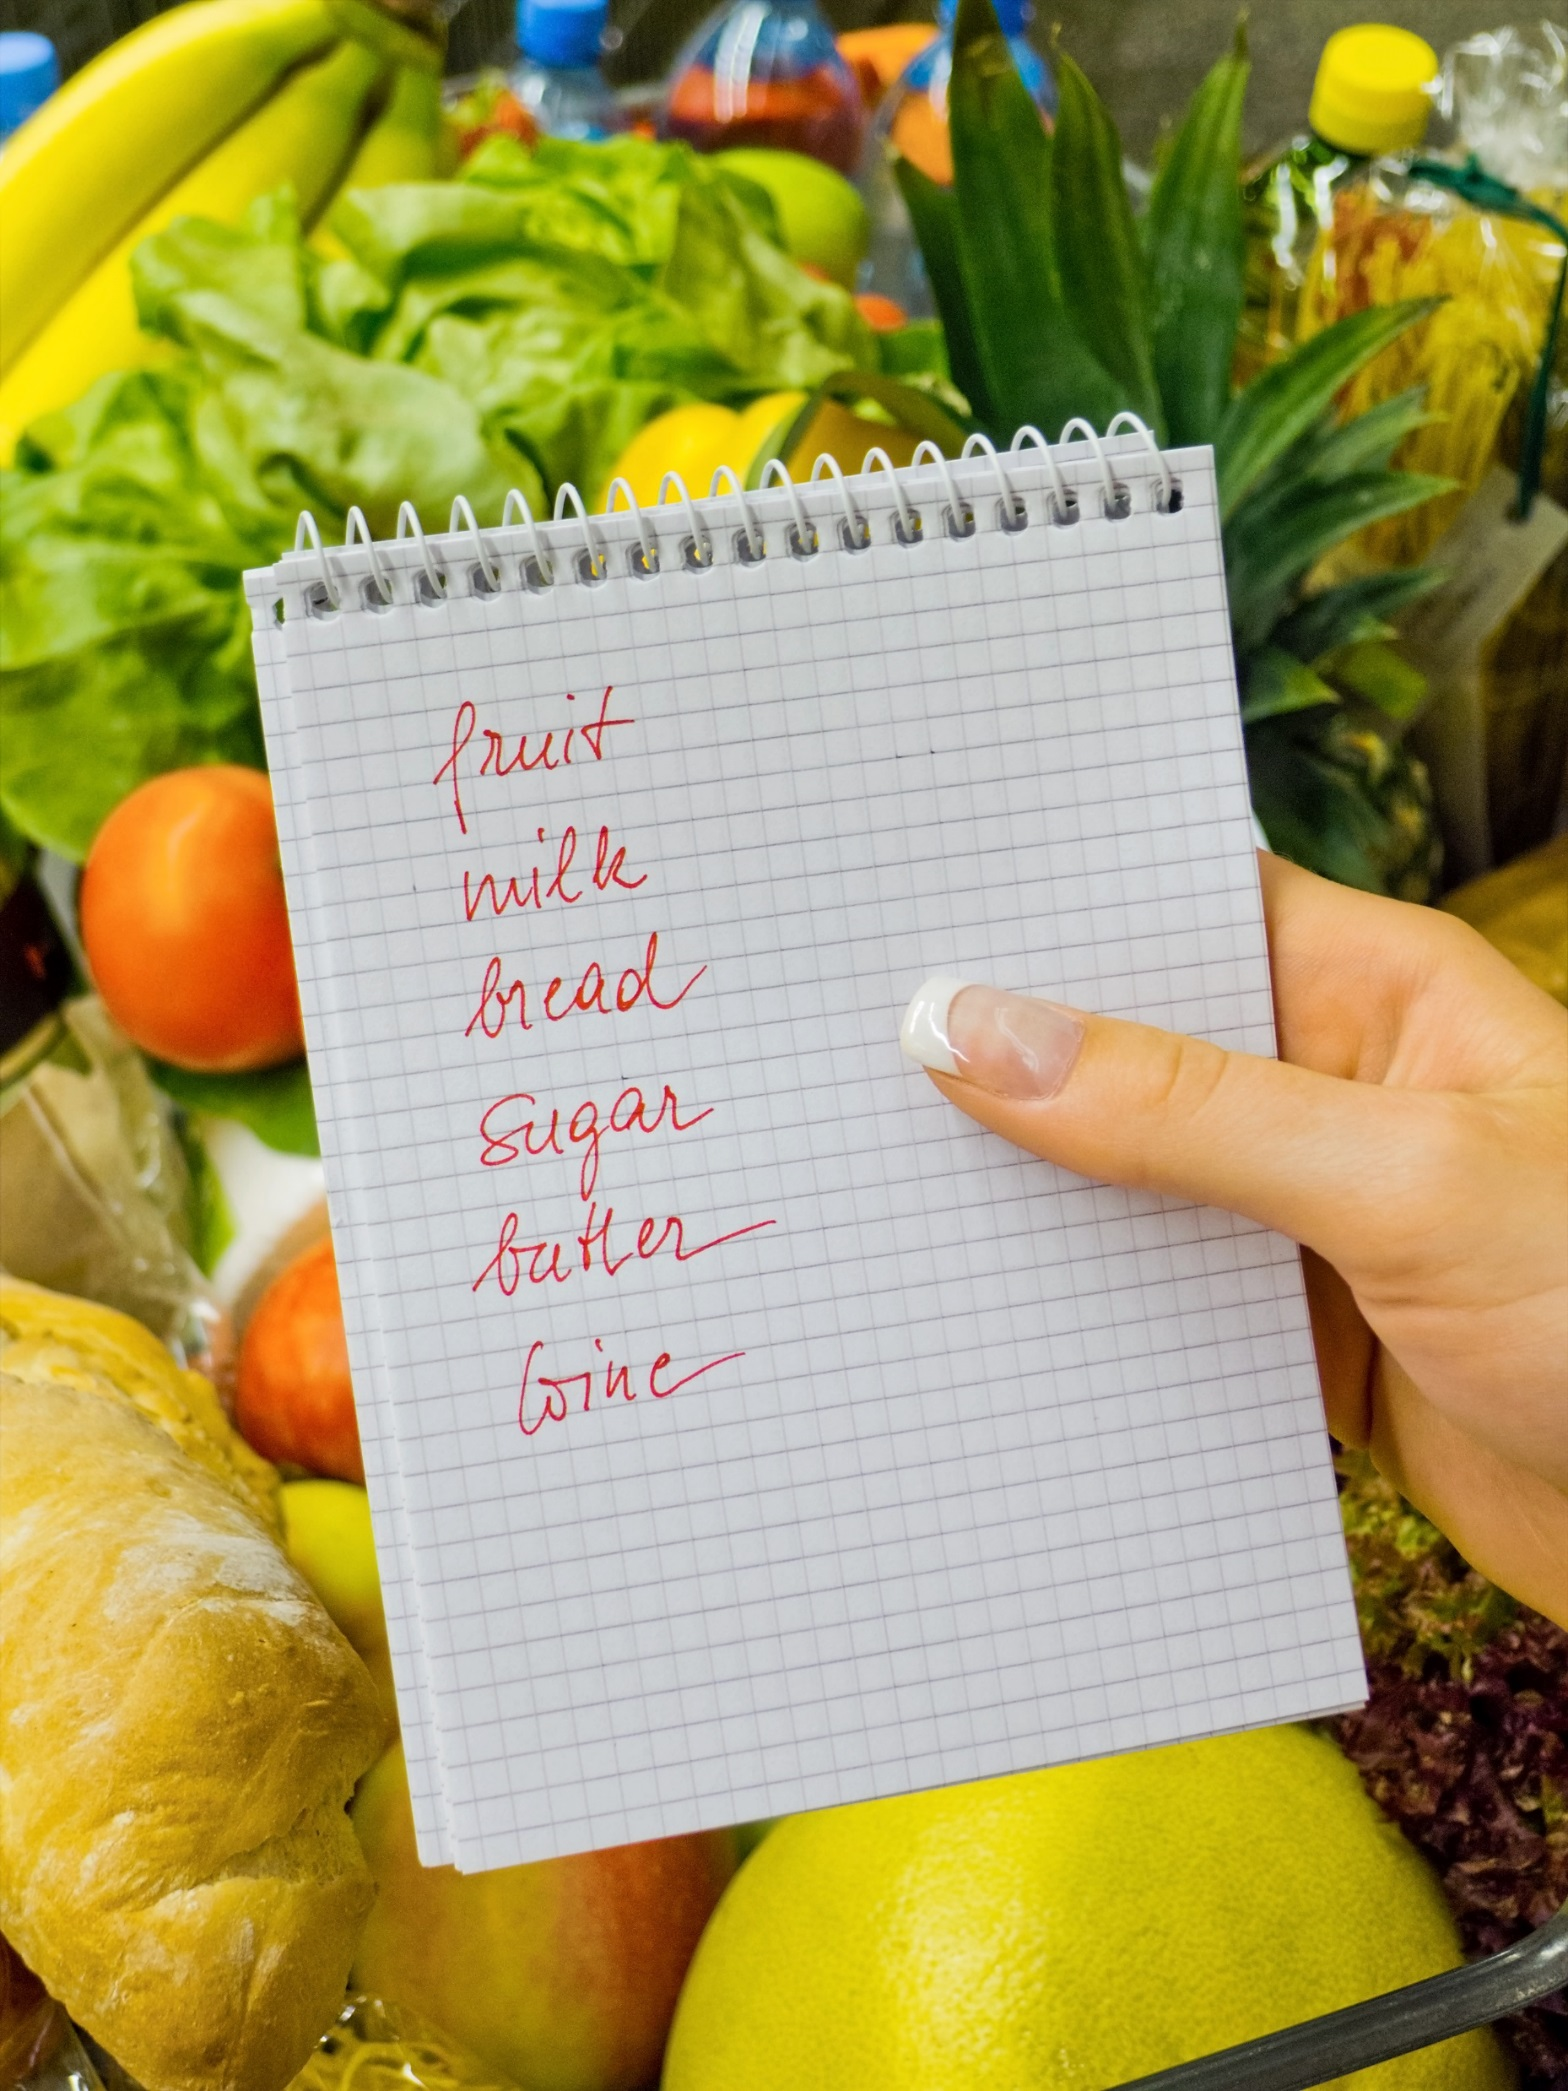 fruit
milk
bread
sugar
butter
wine